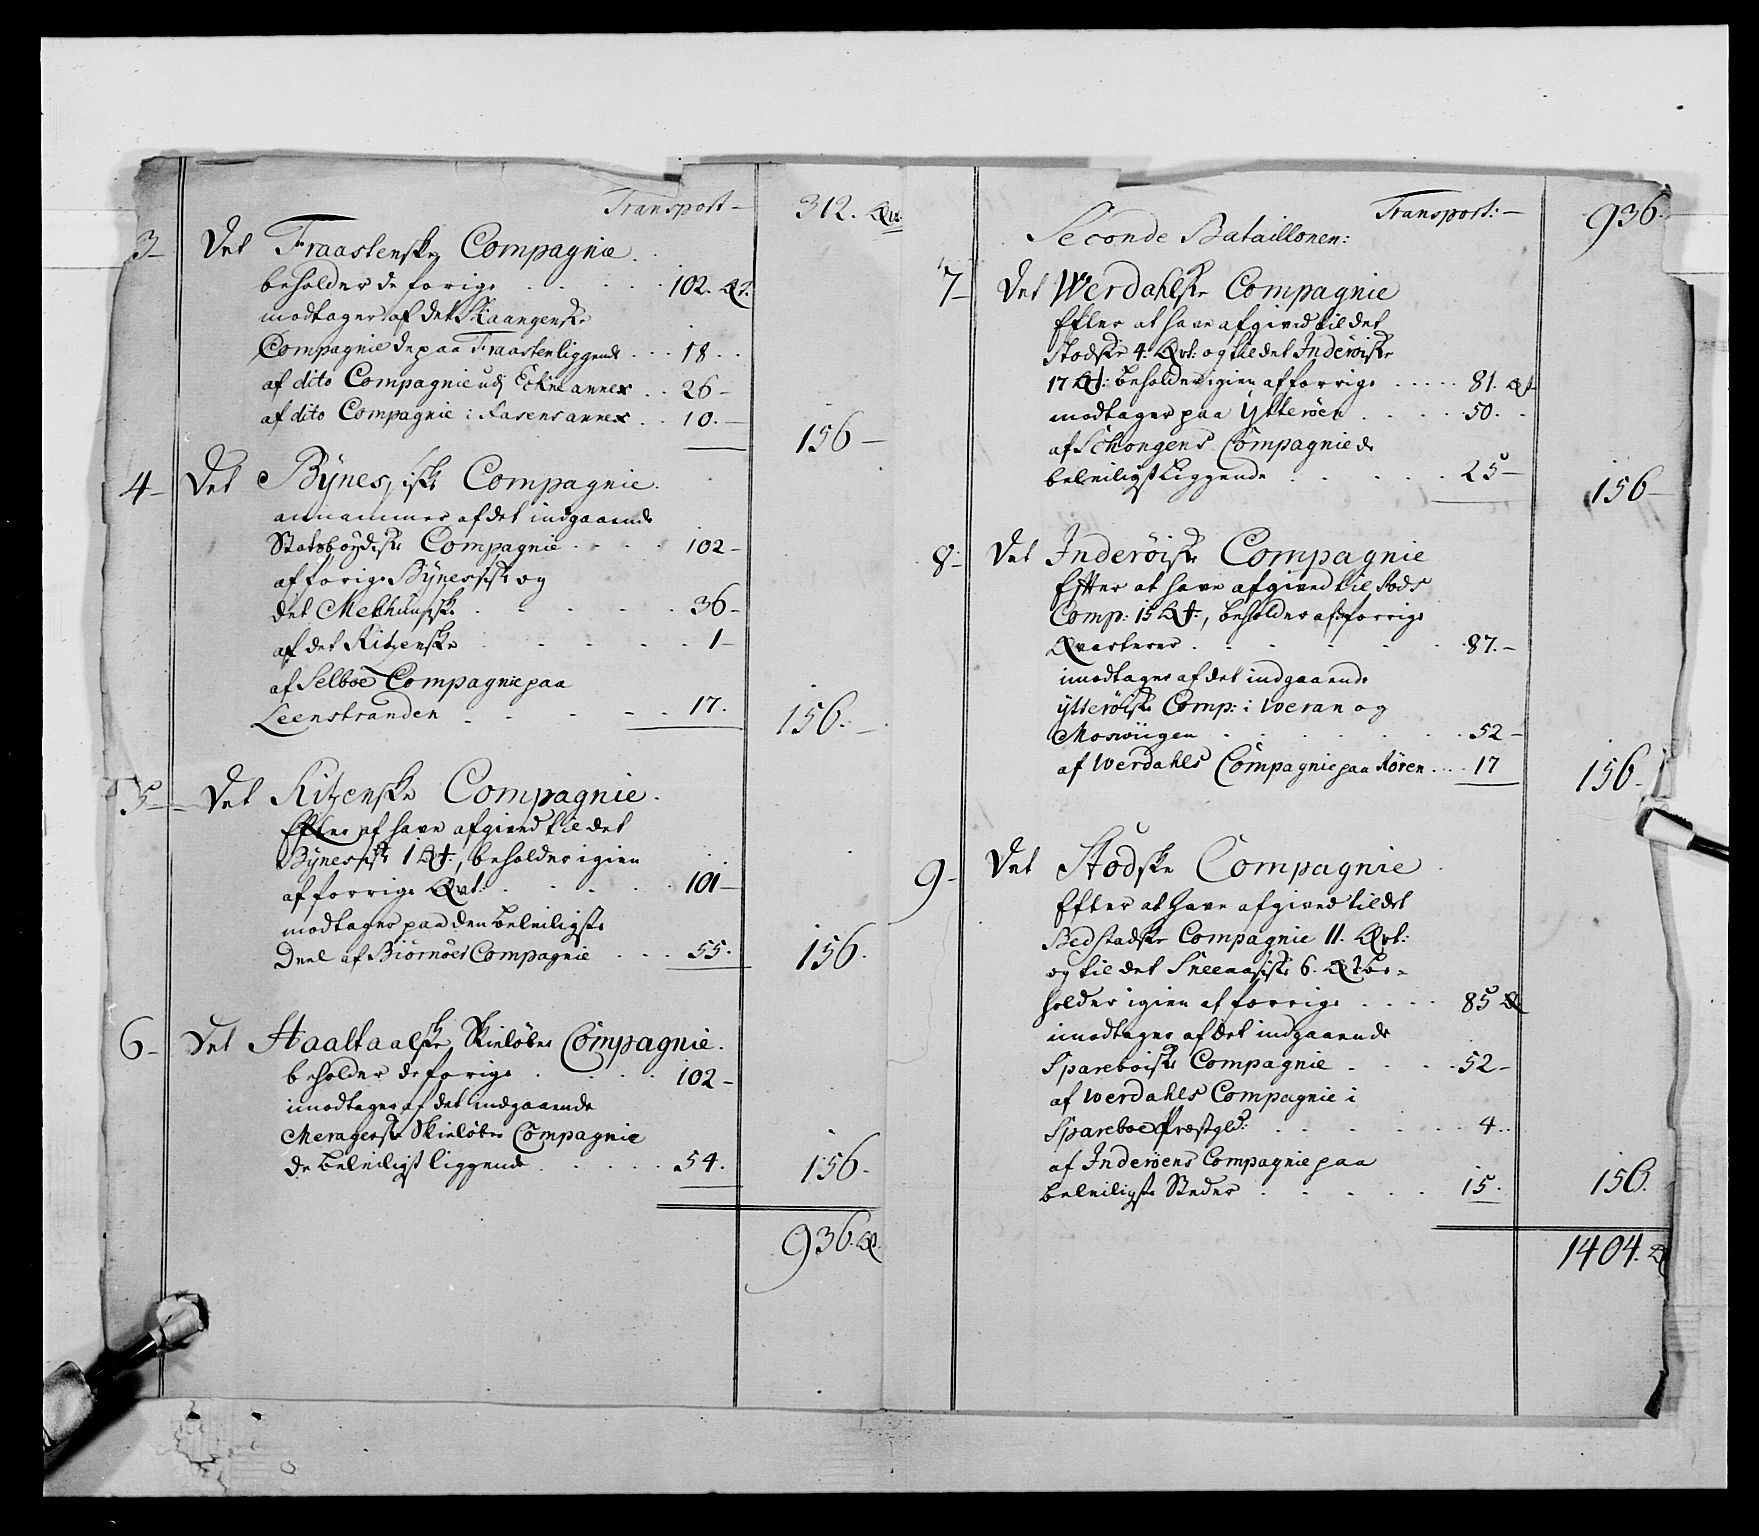 Transport – 312. Qv.
3– Det Fraastenske Compagnie.
beholder de forige . . . . . 102. Qt.
modtager af det Skaangenske
Compagnie de paa Fraasten liggende . . . 18. .
af dito Compagnie udj Eckne annex . . 26–
af dito Compagnie i Aasens annex . . 10.–
156–
4– Det Bÿnesiske Compagnie.
annammer af det indgaaende
Stadsbÿdske Compagnie . . . . 102–
af forige Bÿnessiske og
det Melhuusiske . . . . . . 36–
af det Ritzenske . . . . . . 1–
af Selboe Compagnie paa
Leenstranden . . . . . 17.
156.–
5– Det Ritzenske Compagnie.
Efter at have afgived til det
Bÿnessiske 1 Qt:, beholder igien
af forrige Qvt: . . . . . 101–
modtager paa den beleiligste
Deel af Biörnöer Compagnie . . . 55.
156.
6– Det Haaltaalske Skielöber Compagnie.
beholder de forige . . . . . 102–
imodtager af det indgaaende
Meragerske Skielöber Compagnie
de beleiligst liggende . . . . . 54.
156.
936. Qt.
Transport:– 936.
Seconde Bataillonen:
7– Det Werdahlske Compagnie
Efter at have afgived til det
Stodske 4. Qvt: og til det Inderöiske
17 Qt: beholder igien af forrige . . . . . 81. Qt
modtager paa Ytteröen . . . . 50. .
af Schongens Compagnie de
beleiligst Liggende . . . . . 25–
156–
8– Det Inderöiske Compagnie
Efter at have afgived til Stods
Comp: 15 Qt:, beholder af forrige
Qvarterer . . . . . . . 87.–
imodtager af det indgaaende
ÿtteröiske Comp: i Weran og
Moswiigen . . . . . . . 52–
af Werdahls Compagnie paa Rören . . . . 17
156.–
9– Det Stodske Compagnie
Efter at have afgived til det
Bedstadske Compagnie 11. Qvt:
og til det Sneeaasiske 6. Qt be-
holder igien af forrige . . . . 85 Qt
imodtager af det indgaaende
Spareboiske Compagnie . . . . 52–
af Werdahls Compagnie i
Spareboe Præstgld: . . . . . . 4. .
af Inderöens Compagnie paa
beleiligste Steder . . . . . 15.
156.
1404. Qt